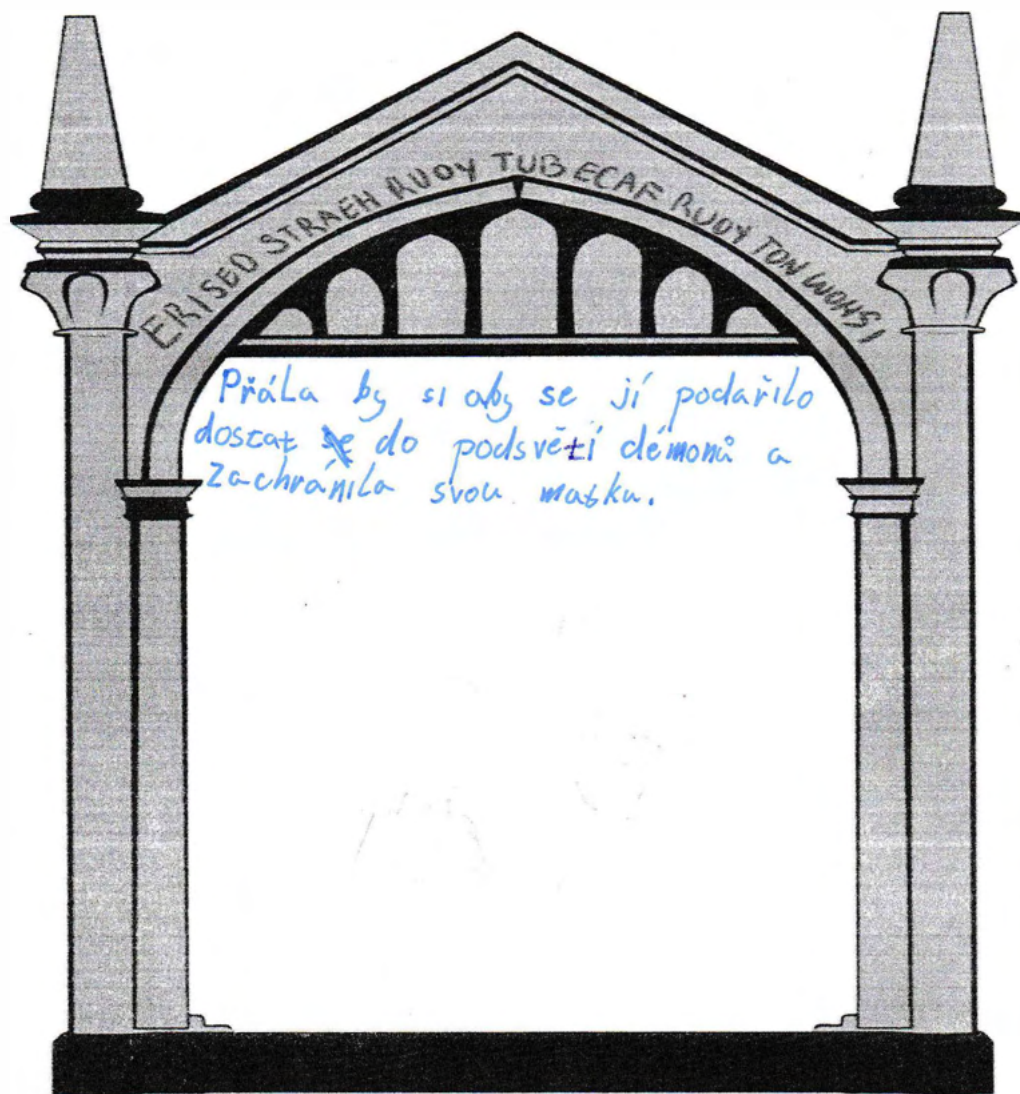 ERISED STRAEH RUOY TUB ECAF RUOY TON WOHSI
Přála by si aby se jí podařilo
dostat do podsvětí démonů a
zachránila svou matku.